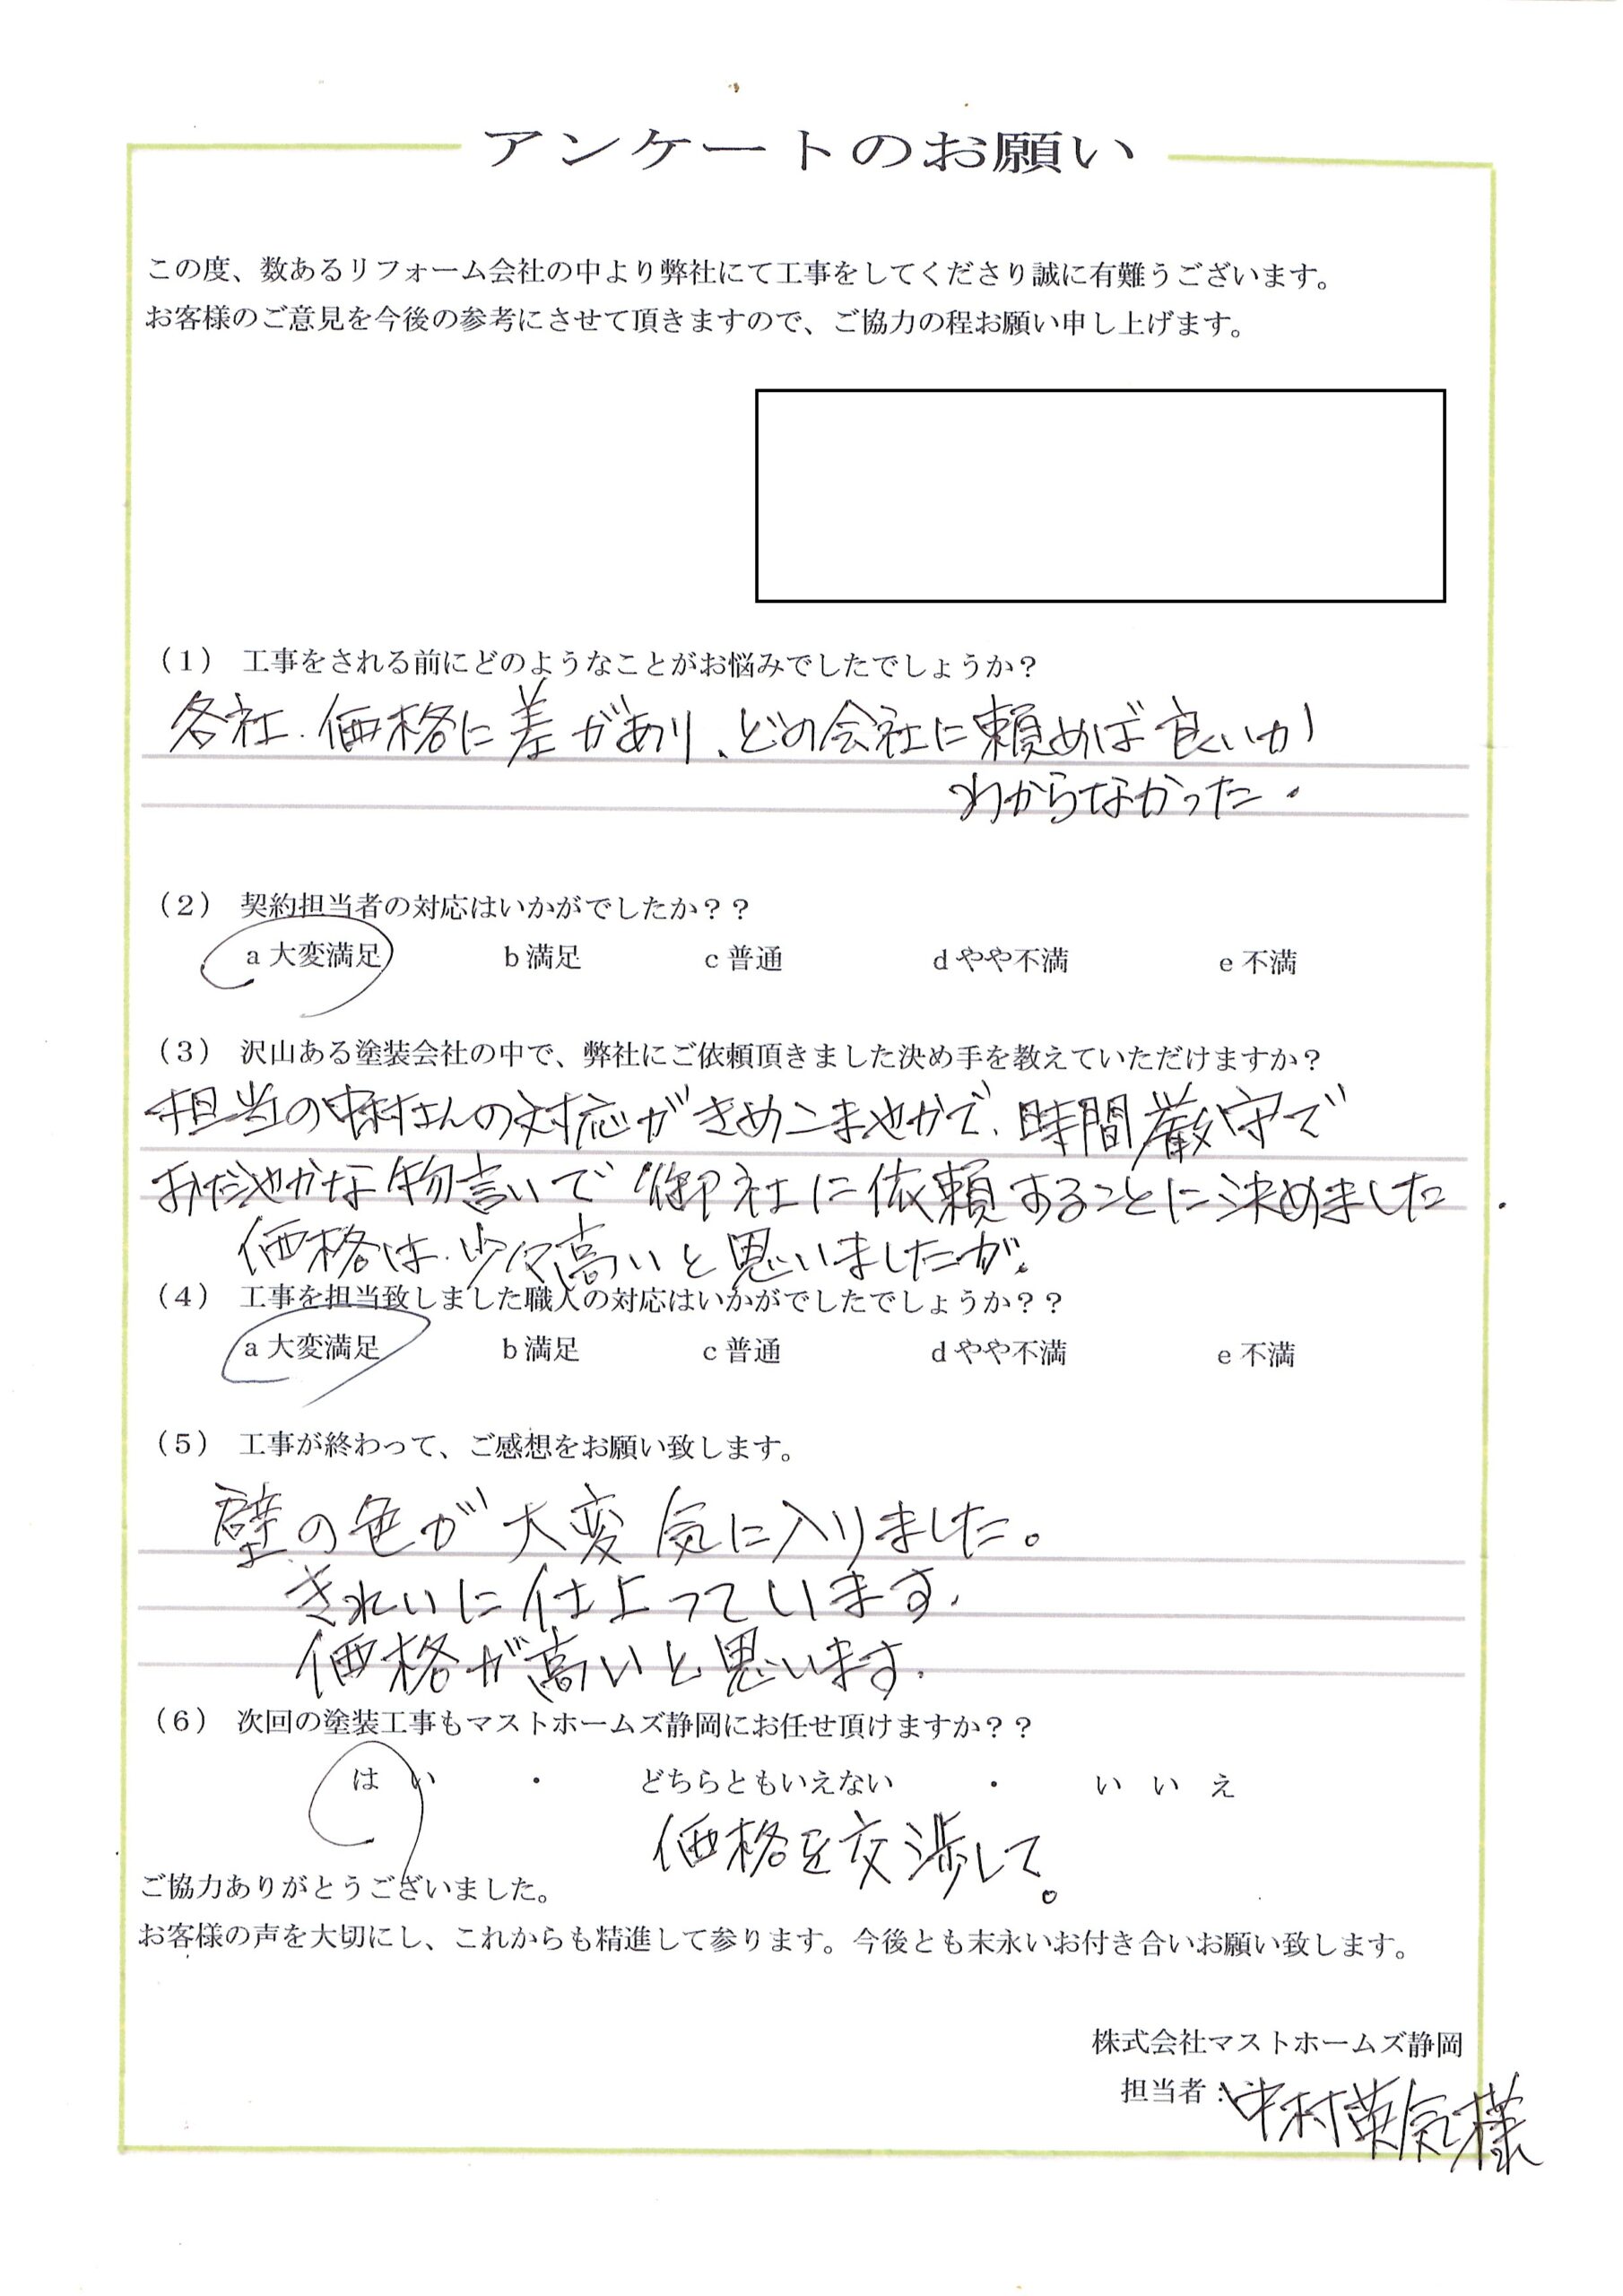 アンケートのお願い
この度、数あるリフォーム会社の中より弊社にて工事をしてくださり誠に有難うございます。
お客様のご意見を今後の参考にさせて頂きますので、ご協力の程お願い申し上げます。
(1) 工事をされる前にどのようなことがお悩みでしたでしょうか？
各社、価格に差があり、どの会社に頼めば良いか
わからなかった。
(2) 契約担当者の対応はいかがでしたか？？
a 大変満足 b 満足 c 普通 d やや不満 e 不満
(3) 沢山ある塗装会社の中で、弊社にご依頼頂きました決め手を教えていただけますか？
担当の中村さんの対応がきめこまやかで、時間厳守で
おだやかな物言いで御社に依頼することに決めました.
価格は、少々高いと思いましたが。
(4) 工事を担当致しました職人の対応はいかがでしたでしょうか？？
a 大変満足 b 満足 c 普通 d やや不満 e 不満
(5) 工事が終わって、ご感想をお願い致します。
壁の色が大変気に入りました。
きれいに仕上っています.
価格が高いと思います.
(6) 次回の塗装工事もマストホームズ静岡にお任せ頂けますか？？
は い ・ どちらともいえない ・ い い え
価格を交渉して。
ご協力ありがとうございました。
お客様の声を大切にし、これからも精進して参ります。今後とも末永いお付き合いお願い致します。
株式会社マストホームズ静岡
担当者：中村英気様